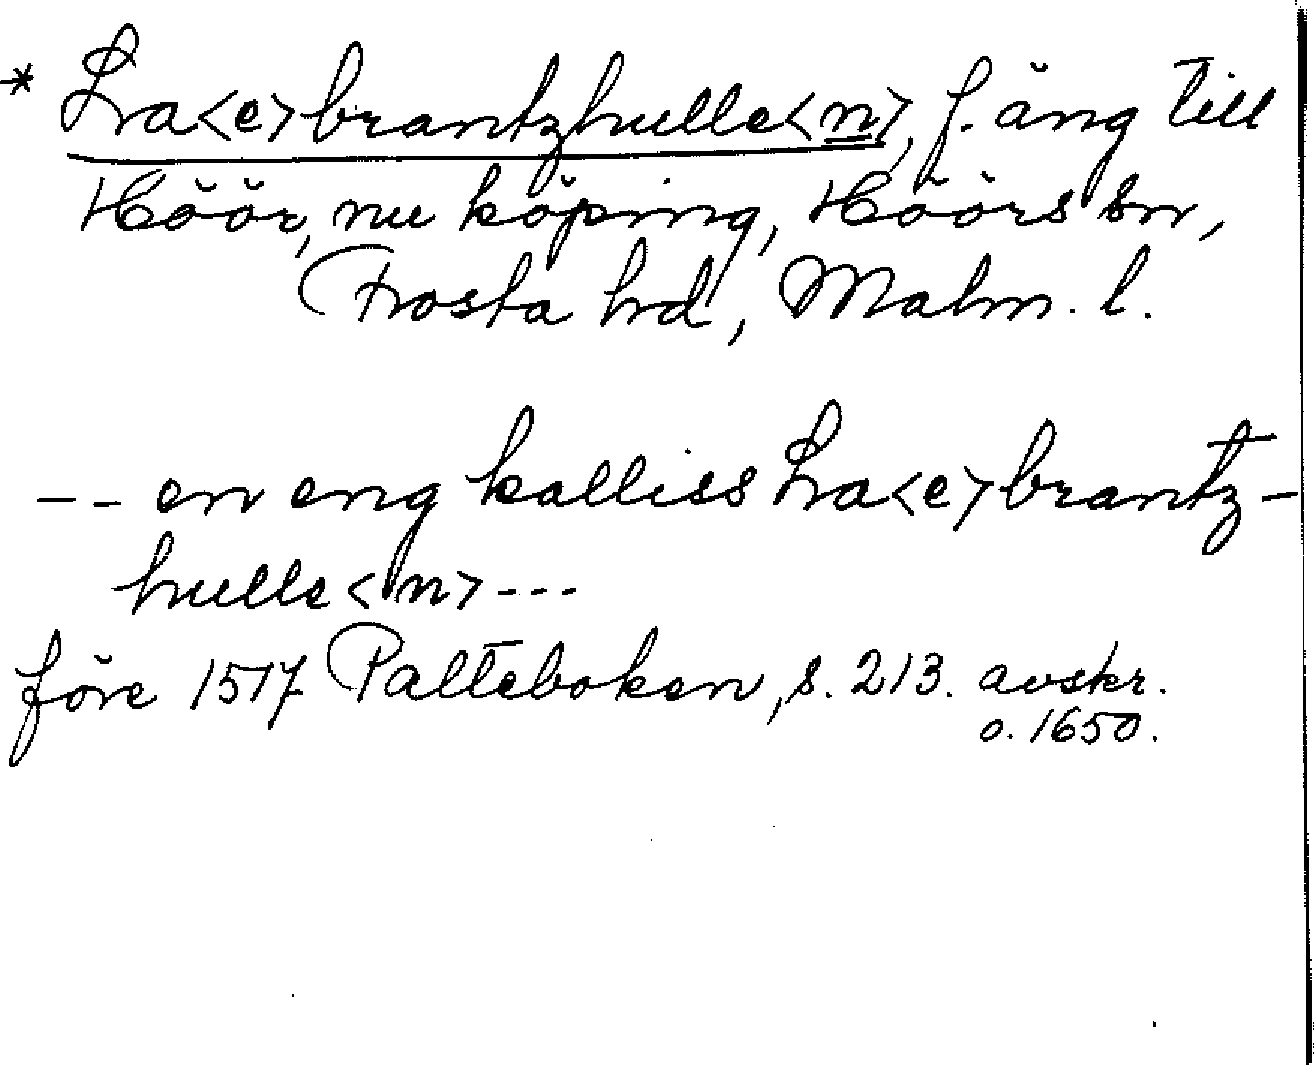 * Ha<e>brantzhulle<n>, f. äng till
Höör, nu köping, Höörs sn,
Frosta hd, Malm. l.
-- en eng kalliss Ha<e>brantz-
hulle<n> ---
före 1517 Palteboken, s. 213. avskr.
o. 1650.